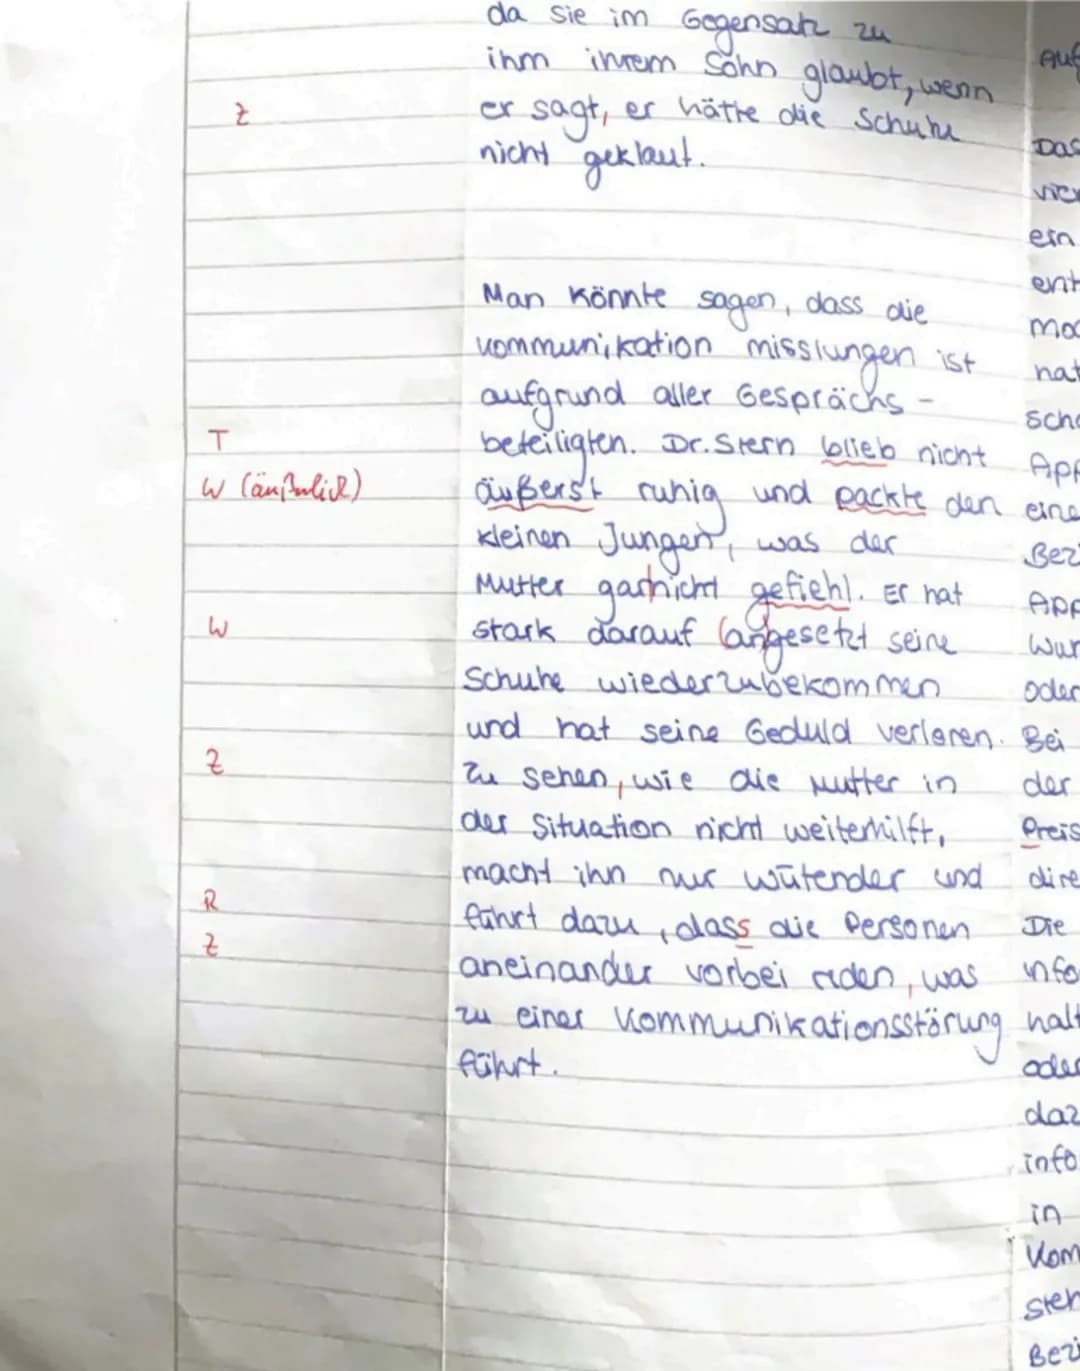 da sie im Gegensatz zu
ihm ihrem Sohn glaubt, wenn
Z
er sagt, er hätte die Schuhe
nicht geklaut.
Man könnte sagen, dass die
Kommunikation misslungen ist
aufgrund aller Gesprächs-
T
beteiligten. Dr. Stern blieb nicht
W (äußerlich)
äußerst ruhig und packte den
kleinen Jungen, was der
Mutter garnicht gefiehl. Er hat
W
stark darauf angesetzt seine
Schuhe wiederzubekommen
und hat seine Geduld verloren.
Z
Zu sehen, wie die Mutter in
der Situation nicht weiterhilft,
macht ihn nur wütender und
R
führt dazu, dass die Personen
Z
aneinander vorbei reden, was
zu einer Kommunikationsstörung
führt.
Auf
Das
vie
ein
ent
mo
hat
sch
App
eine
Bezi
App
Wur
oder
Bei
der
Preis
dire
Die
info
halt
oder
daz
info
in
Kom
steh
Bezi